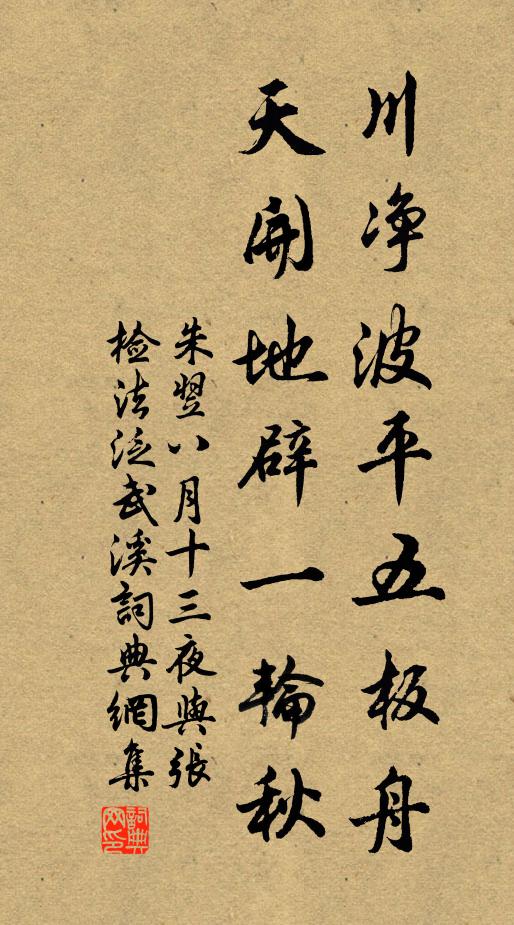 川净波平五板舟
天開地辟一輪秋
朱翌八月十三夜與張
檢法泛武溪詞典網集
詞典网印